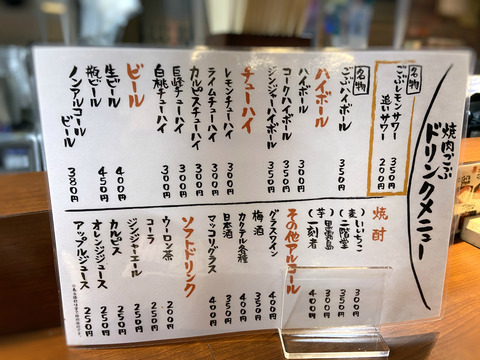 焼肉ごぶ
ドリンクメニュー
名物
ごぶレモンサワー 350円
追いサワー 200円
名物
ごぶハイボール 350円
ハイボール
ハイボール 300円
コークハイボール 350円
ジンジャーハイボール 350円
チューハイ
レモンチューハイ 300円
ライムチューハイ 300円
カルピスチューハイ 300円
巨峰チューハイ 300円
白桃チューハイ 300円
ビール
生ビール 400円
瓶ビール 450円
ノンアルコールビール 380円
焼酎
(麦)いいちこ 300円
(麦)二階堂 350円
(芋)黒霧島 300円
(芋)一刻者 400円
その他アルコール
グラスワイン 400円
梅酒 350円
カクテル各種 400円
日本酒 350円
マッコリグラス 400円
ソフトドリンク
ウーロン茶 200円
コーラ 250円
ジンジャーエール 250円
カルピス 250円
オレンジジュース 250円
アップルジュース 250円